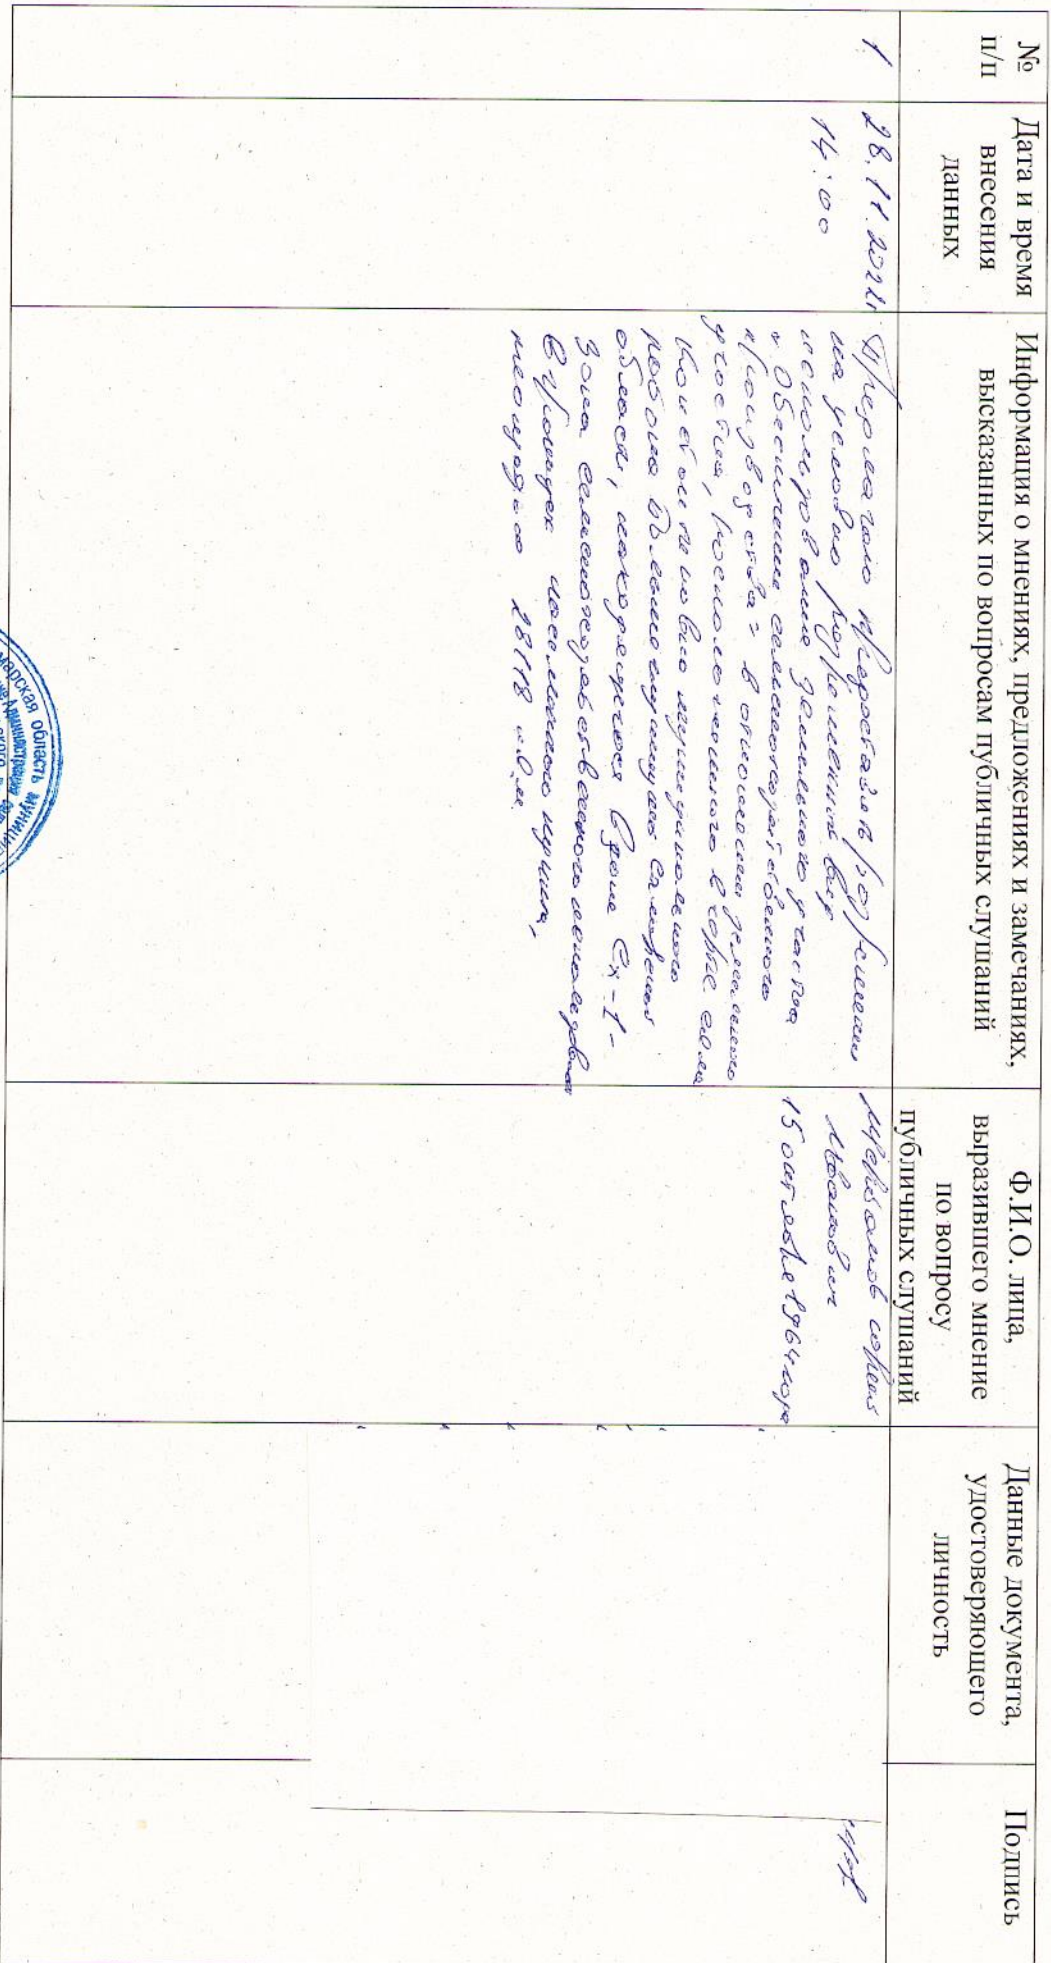 №
п/п
Дата и время
внесения
данных
Информация о мнениях, предложениях и замечаниях,
высказанных по вопросам публичных слушаний
Ф.И.О. лица,
выразившего мнение
по вопросу
публичных слушаний
Данные документа,
удостоверяющего
личность
Подпись
1
28.11.2022г
14:00
Предлагаю предоставить разрешение
на условно разрешенный вид
использования земельного участка
"Обеспечение сельскохозяйственного
производства" в отношении земельного
участка, расположенного в селе
муниципального
района Большеглушицкий Самарской
области, находящегося в зоне Сх-1-
Зона сельскохозяйственного использования
в границах населенного пункта,
площадью 28118 кв.м.
Иванович
15 октября 1964 года
марская область муницип